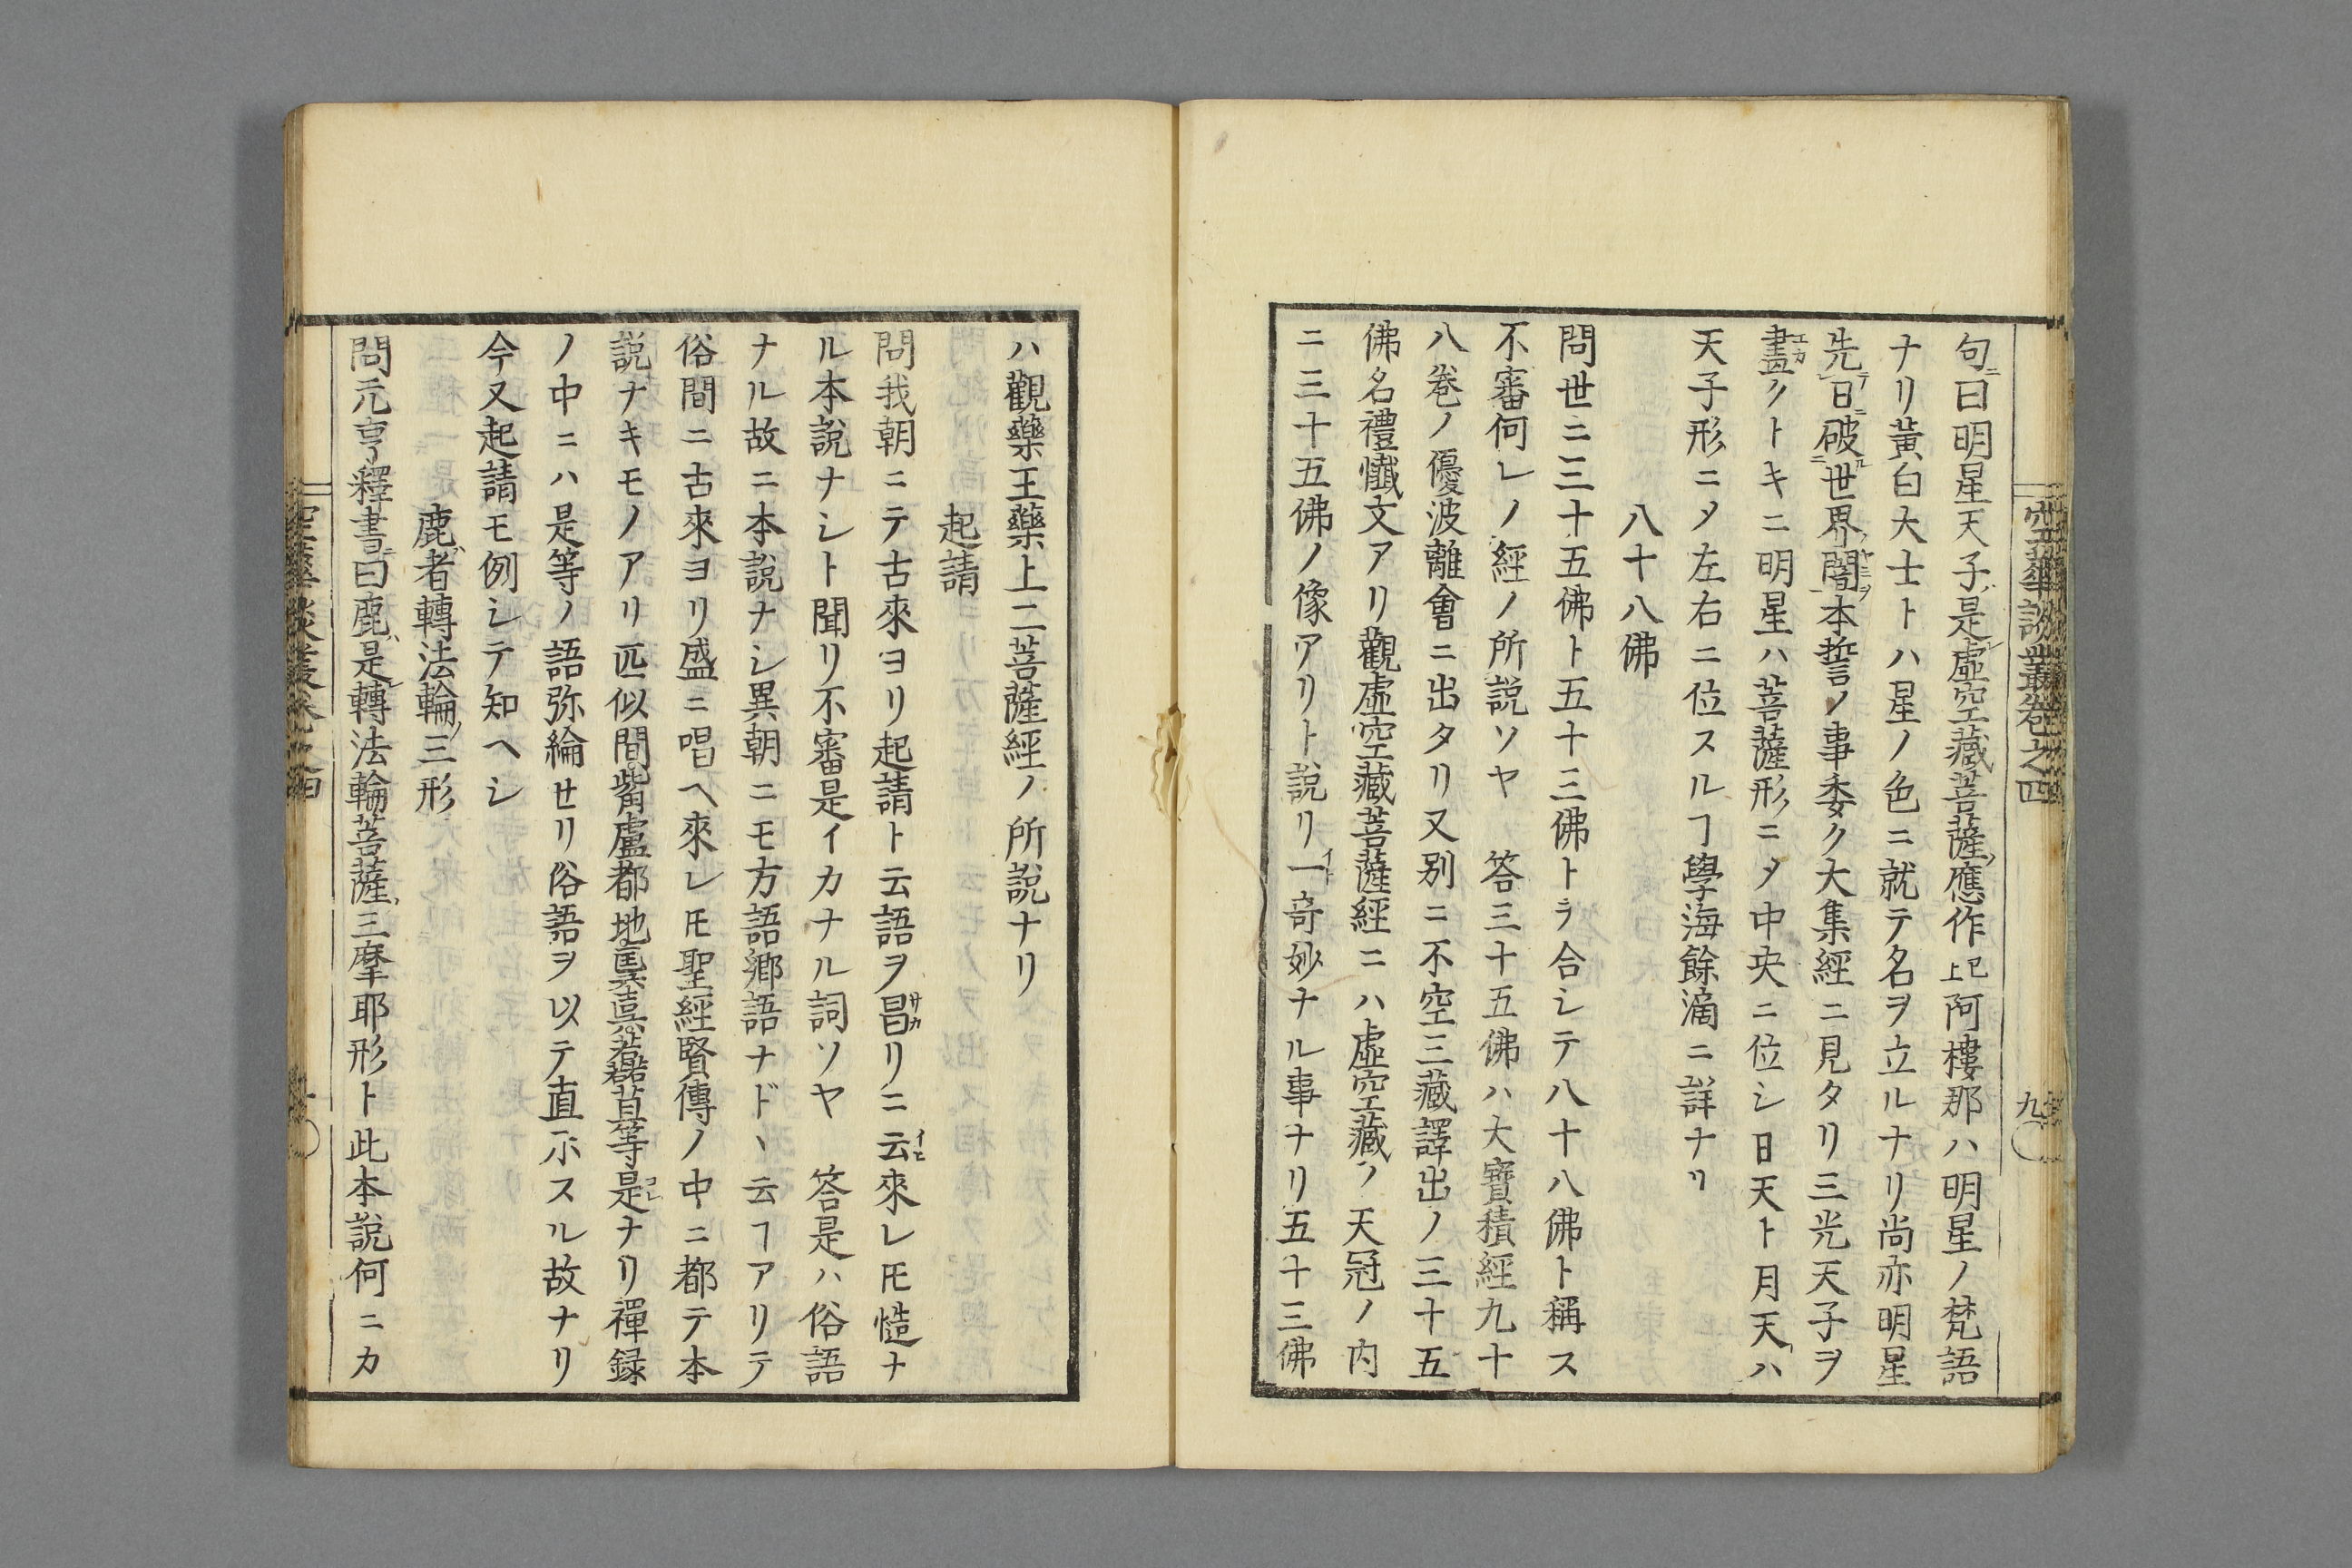 空華談叢卷之四
九
句ニ曰明星天子ハ是レ虛空藏菩薩ノ應作已上阿樓那ハ明星ノ梵語
ナリ黃白大士トハ星ノ色ニ就テ名ヲ立ルナリ尚亦明星
先テ日ニ破ル世界ノ闇ヤミヲ本誓ノ事委ク大集經ニ見タリ三光天子ヲ
畫エカクトキニ明星ハ菩薩形ニメ中央ニ位シ日天ト月天トハ
天子形ニメ左右ニ位スルヿ學海餘滴ニ詳ナリ
八十八佛
問世ニ三十五佛ト五十三佛トヲ合シテ八十八佛ト稱ス
不審何レノ經ノ所說ソヤ 答三十五佛ハ大寶積經九十
八卷ノ優波離會ニ出タリ又别ニ不空三藏譯出ノ三十五
佛名禮懺文アリ觀虛空藏菩薩經ニハ虛空藏ノ天冠ノ内
ニ三十五佛ノ像アリト說リ一イト奇妙ナル事ナリ五十三佛
ハ觀藥王藥上二菩薩經ノ所說ナリ
起請
問我朝ニテ古來ヨリ起請ト云語ヲ昌サカリニ云イヒ來レ𪜈慥ナ
ル本說ナシト聞リ不審是イカナル詞ソヤ 答是ハ俗語
ナル故ニ本說ナシ異朝ニモ方語鄕語ナド丶云ヿアリテ
俗間ニ古來ヨリ盛ニ唱ヘ來レ𪜈聖經賢傳ノ中ニ都テ本
說ナキモノアリ匹似間觜盧都地𮌎真蘇苴等是コレナリ禪録
ノ中ニハ是等ノ語弥綸せリ俗語ヲ以テ直示スル故ナリ
今又起請モ例シテ知ヘシ
鹿ハ者轉法輪ノ三形
問元亨釋書ニ曰鹿ハ是レ轉法輪菩薩ノ三摩耶形ト此本說何ニカ
空華談叢卷之四